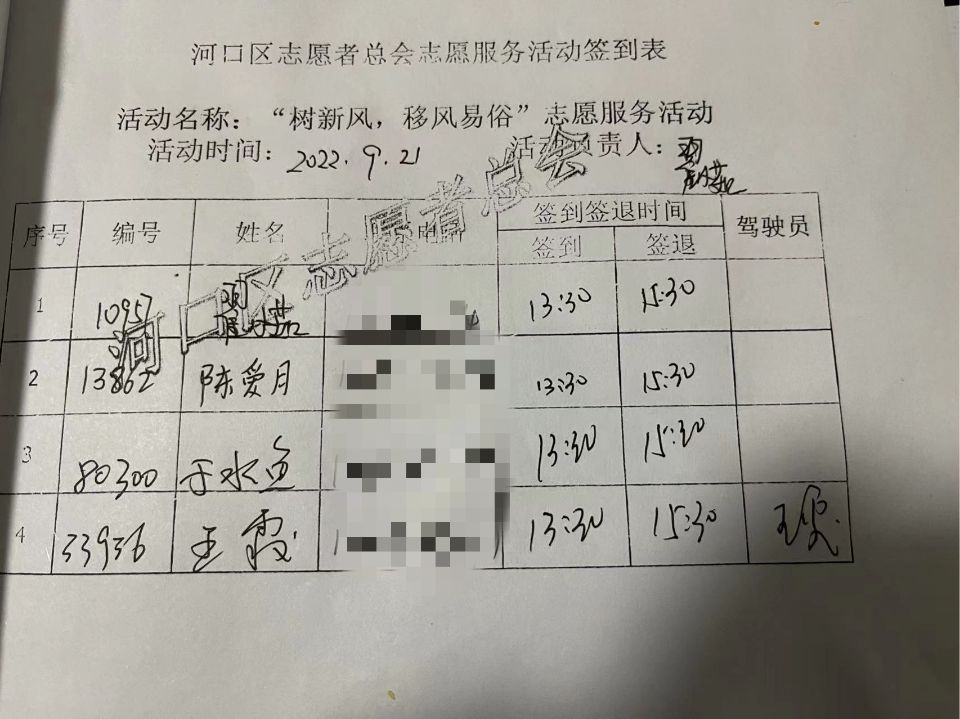 河口区志愿者总会志愿服务活动签到表
活动名称：“树新风，移风易俗”志愿服务活动
活动时间：2022.9.21 活动负责人：
序号 编号 姓名 签到签退时间 驾驶员
签到 签退
1 10957 13:30 15:30
2 13862 陈爱月 13:30 15:30
3 80300 于水鱼 13:30 15:30
4 33956 王霞 13:30 15:30 王霞
河口区志愿者总会